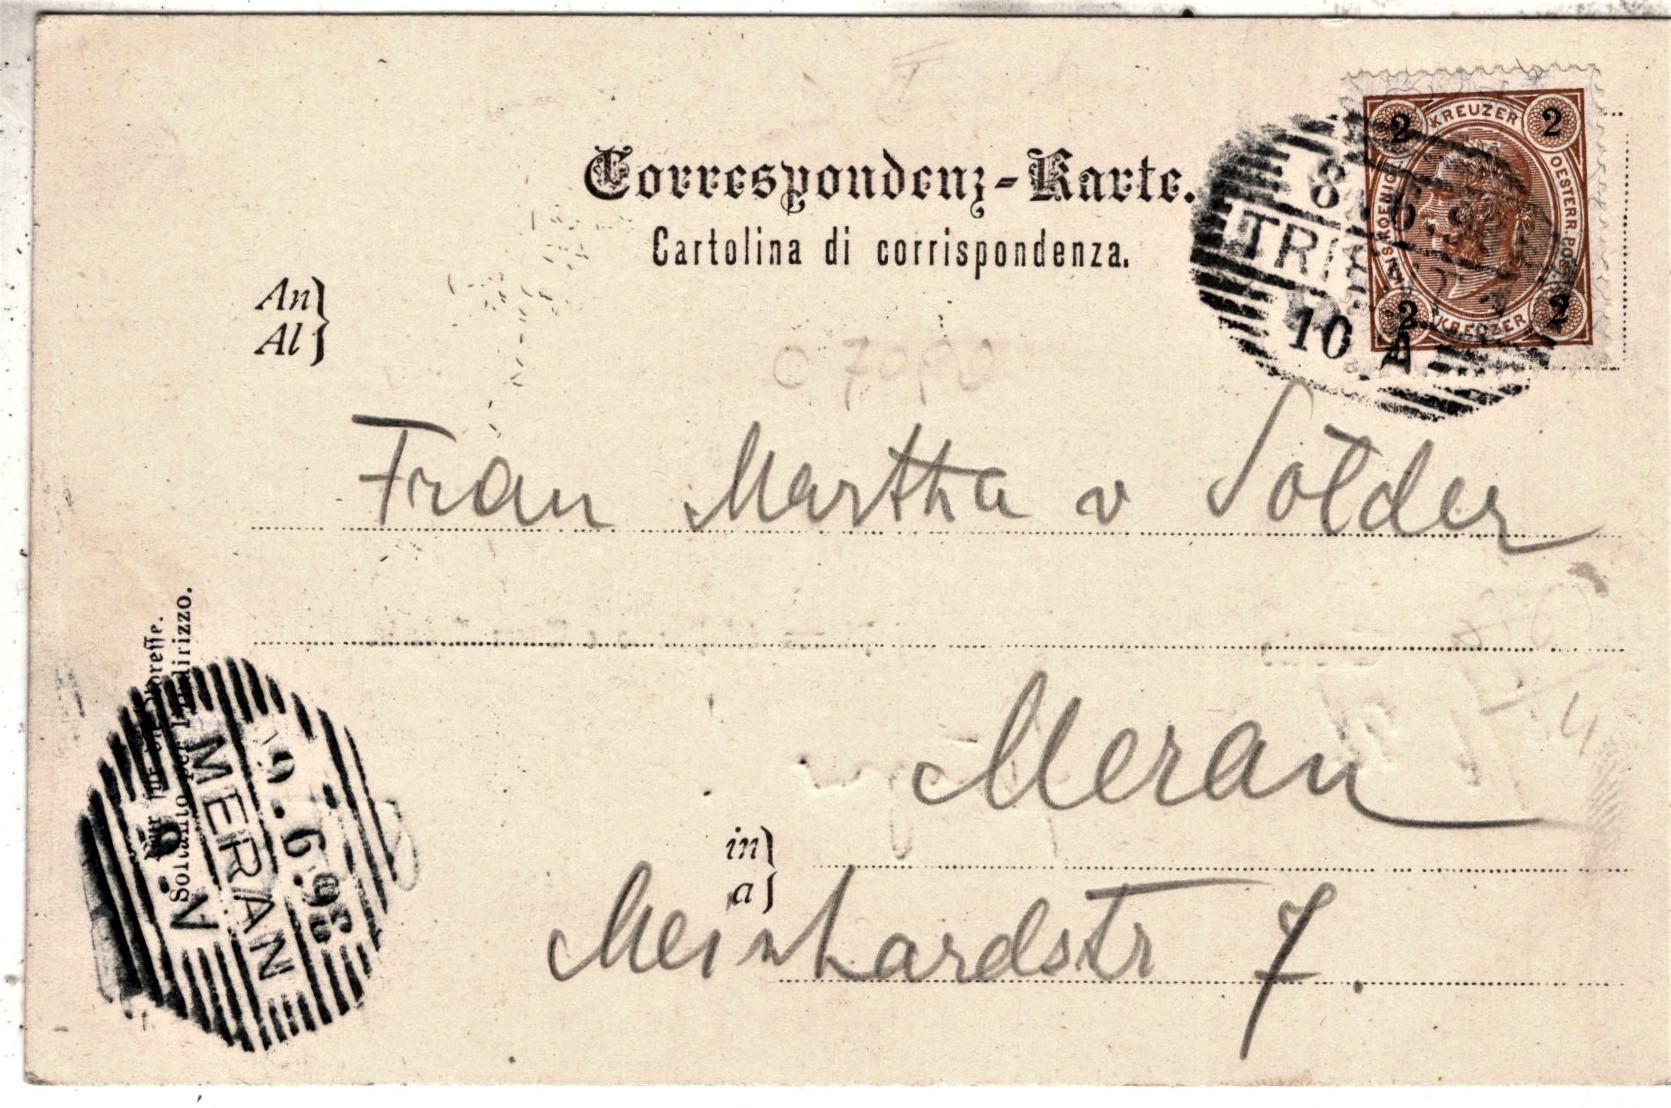 Correspondenz-Karte.
Cartolina di corrispondenza.
An
Al
2 KREUZER 2
KAIS. KOENIGL. OESTERR. POST
2 KREUZER 2
8
TRI
10 A
Frau Martha v Sölder
Meran
in
a
Meinhardstr 7.
Nur für die Adresse.
Soltanto per l'indirizzo.
9.6.98
MERAN
9.V